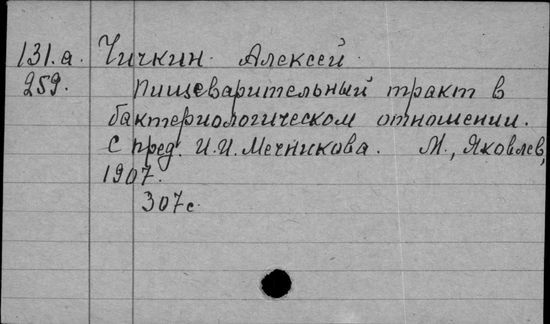 131.а. Чичкин Алексей.
259. Пищеварительный тракт в
бактериологическом отношении.
С пред. И.И. Мечникова. М., Яковлев,
1907.
307с.